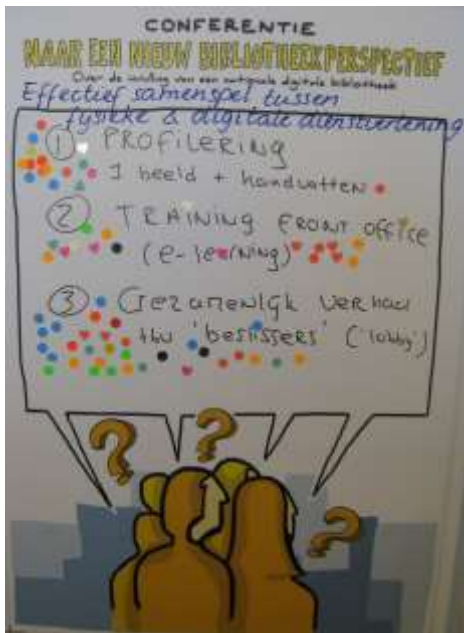 CONFERENTIE
NAAR EEN NIEUW BIBLIOTHEEKPERSPECTIEF
Over de invulling van een nationale digitale bibliotheek
Effectief samenspel tussen
fysieke & digitale dienstverlening
1 PROFILERING
1 beeld + handvatten
2 TRAINING FRONT OFFICE
(e-learning)
3 Gezamenlijk verhaal
tbv 'beslissers' ('lobby')